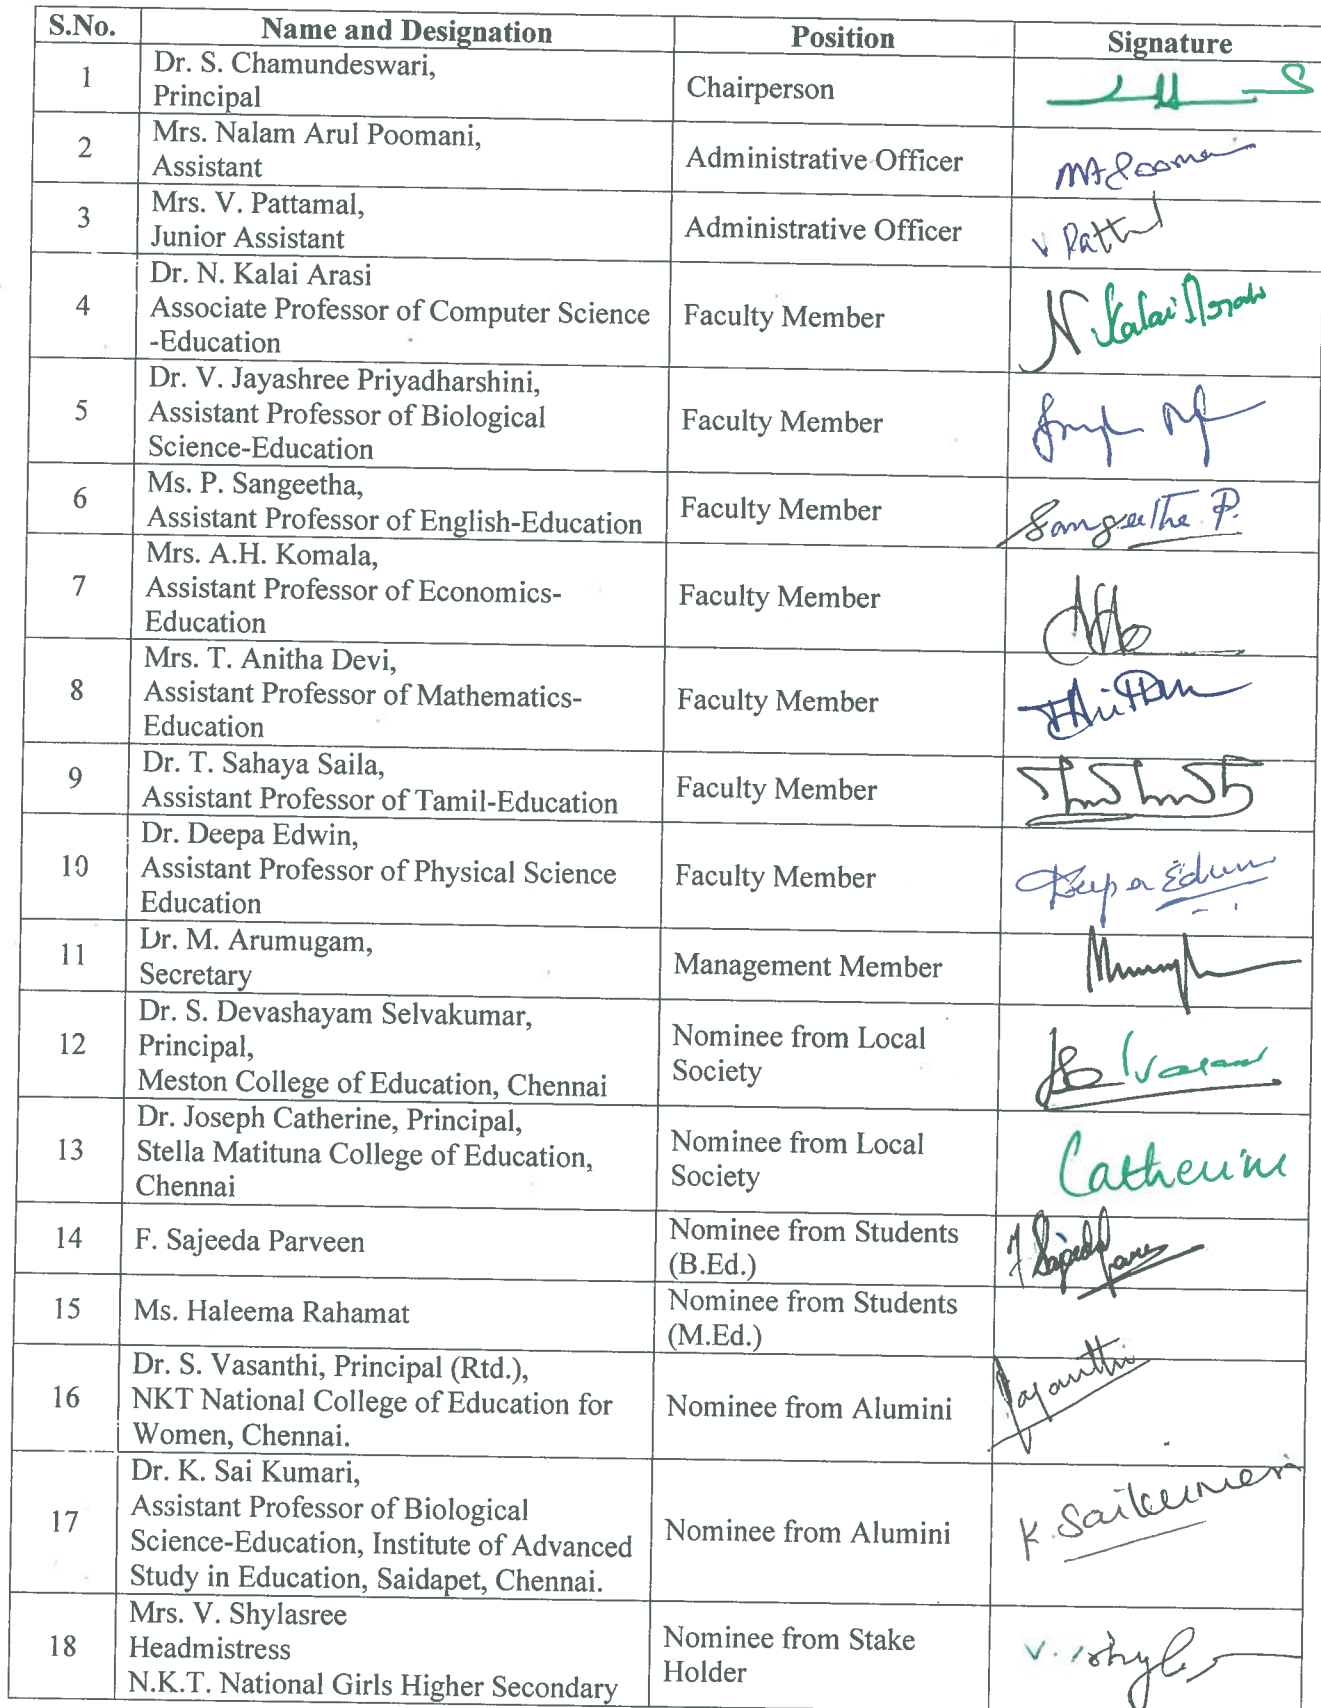 S.No. Name and Designation Position Signature
1 Dr. S. Chamundeswari,
Principal Chairperson
2 Mrs. Nalam Arul Poomani,
Assistant Administrative Officer
3 Mrs. V. Pattamal,
Junior Assistant Administrative Officer V Patt
4 Dr. N. Kalai Arasi
Associate Professor of Computer Science
-Education Faculty Member N Kalai Arasi
5 Dr. V. Jayashree Priyadharshini,
Assistant Professor of Biological
Science-Education Faculty Member
6 Ms. P. Sangeetha,
Assistant Professor of English-Education Faculty Member Sangeetha P.
7 Mrs. A.H. Komala,
Assistant Professor of Economics-
Education Faculty Member
8 Mrs. T. Anitha Devi,
Assistant Professor of Mathematics-
Education Faculty Member
9 Dr. T. Sahaya Saila,
Assistant Professor of Tamil-Education Faculty Member
10 Dr. Deepa Edwin,
Assistant Professor of Physical Science
Education Faculty Member Deepa Edwin
11 Dr. M. Arumugam,
Secretary Management Member
12 Dr. S. Devashayam Selvakumar,
Principal,
Meston College of Education, Chennai Nominee from Local
Society
13 Dr. Joseph Catherine, Principal,
Stella Matituna College of Education,
Chennai Nominee from Local
Society Catherine
14 F. Sajeeda Parveen Nominee from Students
(B.Ed.) F Sajeeda
15 Ms. Haleema Rahamat Nominee from Students
(M.Ed.)
16 Dr. S. Vasanthi, Principal (Rtd.),
NKT National College of Education for
Women, Chennai. Nominee from Alumini Vasanthi
17 Dr. K. Sai Kumari,
Assistant Professor of Biological
Science-Education, Institute of Advanced
Study in Education, Saidapet, Chennai. Nominee from Alumini K. Saikumari
18 Mrs. V. Shylasree
Headmistress
N.K.T. National Girls Higher Secondary Nominee from Stake
Holder